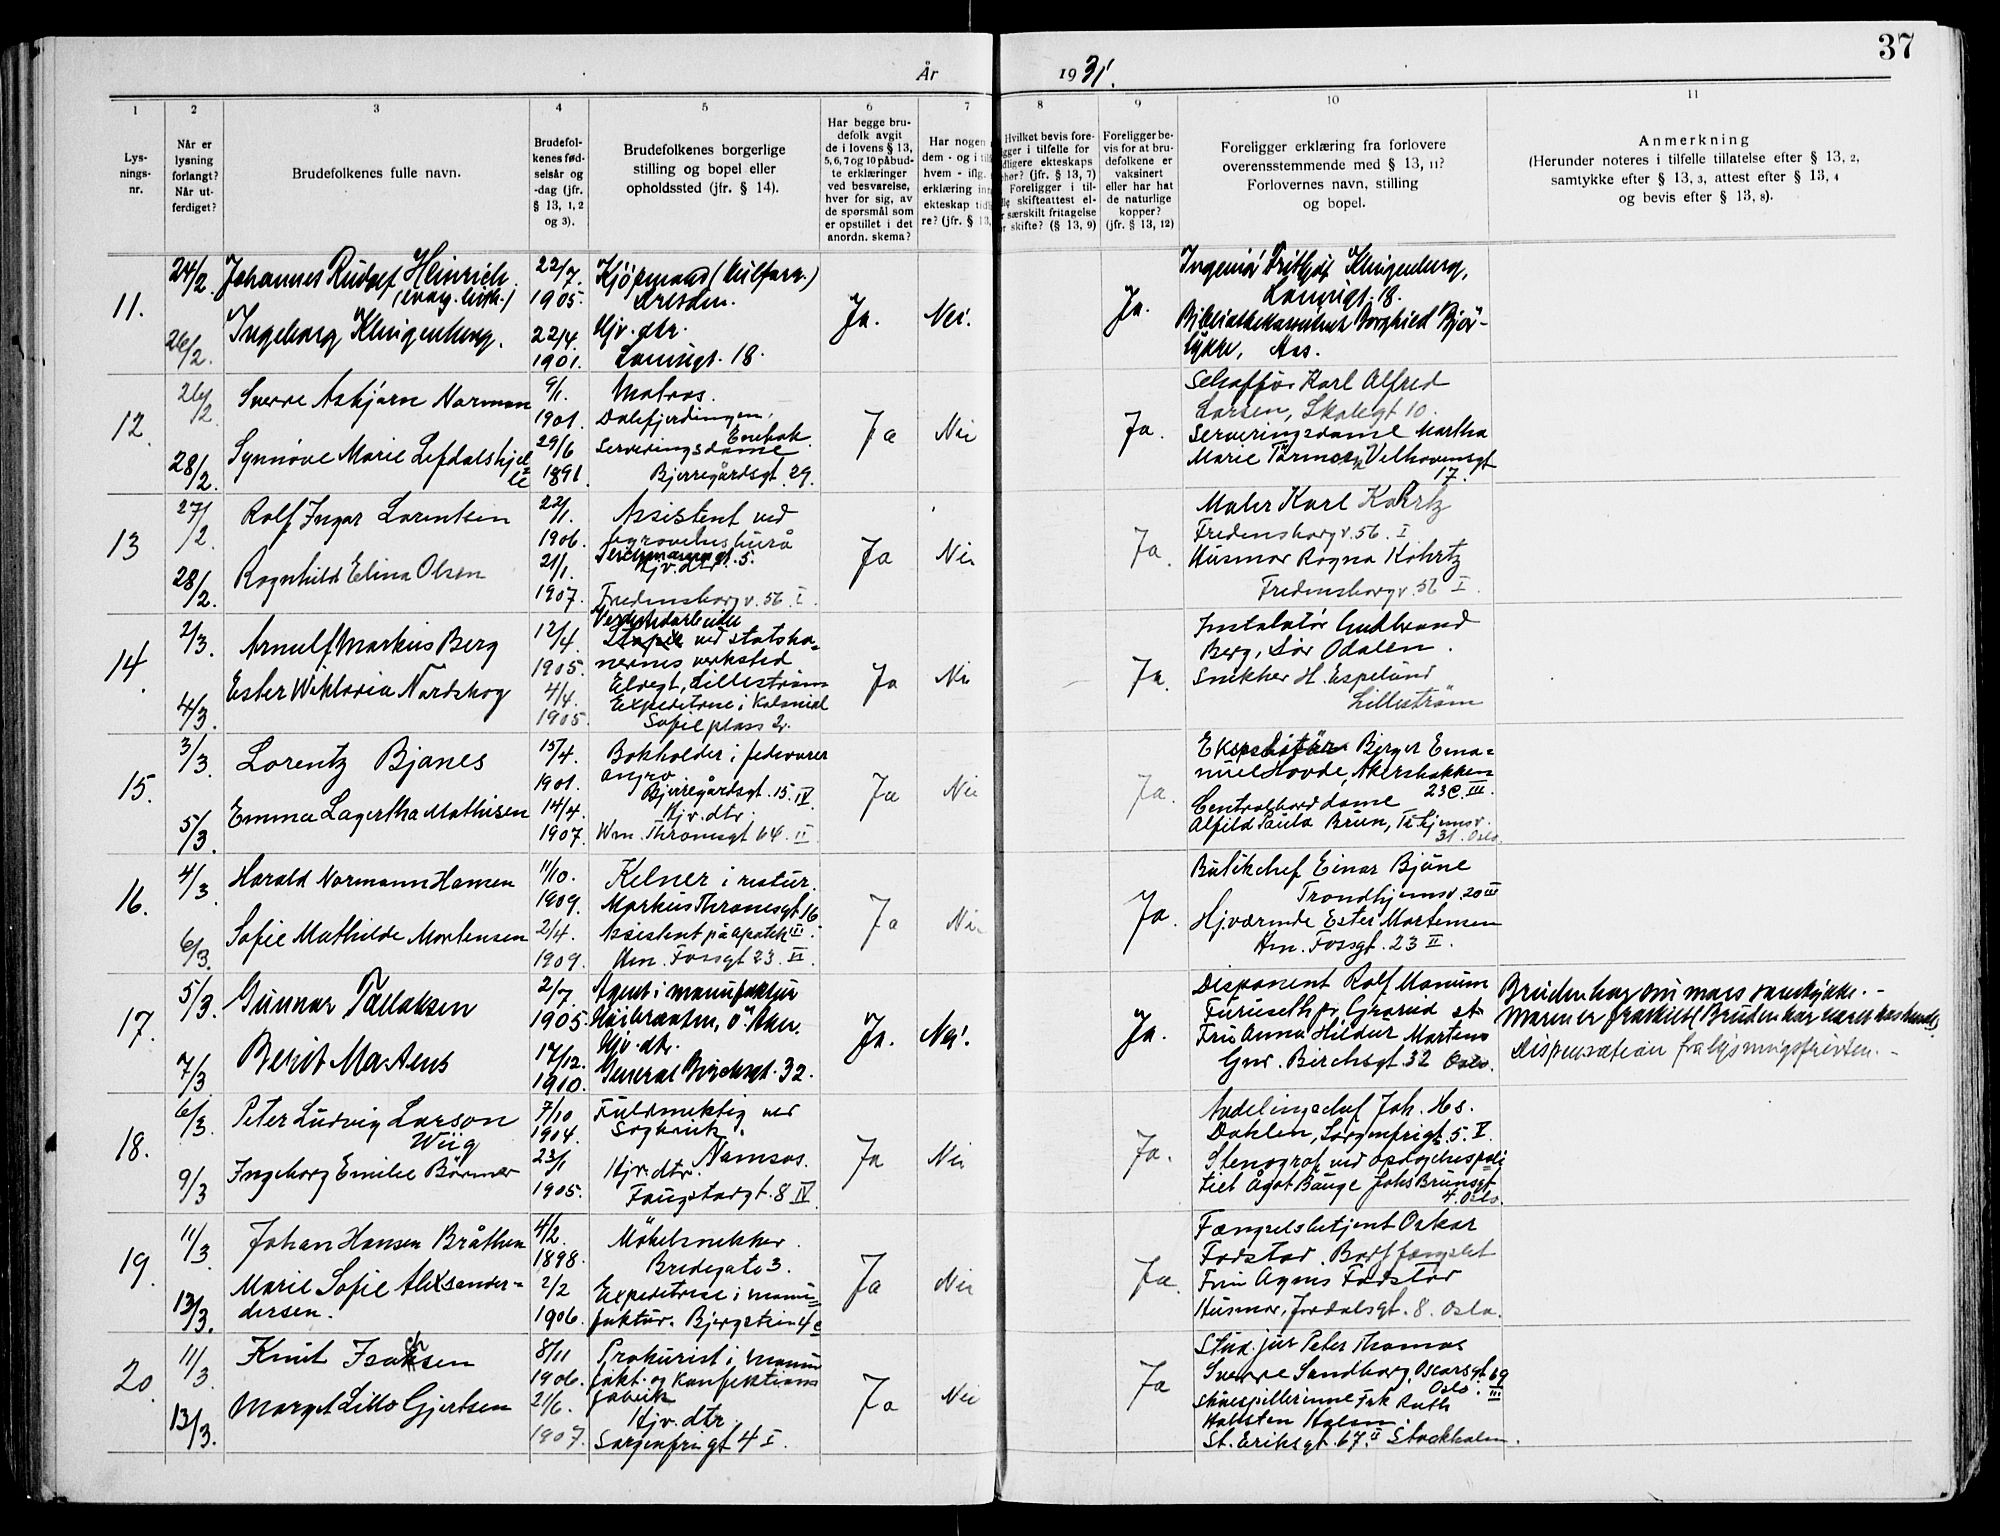 37
År 1931.
1 2 3 4 5 6 7 8 9 10 11
Lys-
nings-
nr.
Når er
lysning
forlangt?
Når ut-
ferdiget?
Brudefolkenes fulle navn.
Brudefol-
kenes fød-
selsår og
-dag (jfr.
§ 13, 1, 2
og 3).
Brudefolkenes borgerlige
stilling og bopel eller
opholdssted (jfr. § 14).
Har begge bru-
defolk avgit
de i lovens § 13,
5, 6, 7 og 10 påbud-
te erklæringer
ved besvarelse,
hver for sig, av
de spørsmål som
er opstillet i det
anordn. skema?
Har nogen
dem - og i til
hvem - iflg.
erklæring in
ekteskap tid
re? (jfr. § 13,
Hvilket bevis fore-
gger i tilfelle for
dligere ekteskaps
hør? (jfr. § 13, 7)
Foreligger i til-
le skifteattest el-
r særskilt fritagelse
r skifte? (§ 13, 9)
Foreligger be-
vis for at bru-
defolkene er
vaksinert
eller har hat
de naturlige
kopper?
(jfr. § 13, 12)
Foreligger erklæring fra forlovere
overensstemmende med § 13, 11?
Forlovernes navn, stilling
og bopel.
Anmerkning
(Herunder noteres i tilfelle tillatelse efter § 13, 2,
samtykke efter § 13, 3, attest efter § 13, 4
og bevis efter § 13, 8).
11.
24/2.
26/2.
Johannes Rudolf Heinrich
(evag. luth.)
Ingeborg Klingenberg.
22/7.
1905.
22/4.
1901.
Kjöpmand
Dresden.
Hjv. dtr.
18.
Ja.
Nei.
Ja.
Ingeniör Fritjof Klingenberg,
18.
Borghild Björ-
lykke, Aas.
12.
26/2
28/2.
Sverre Asbjørn Norman
Synnøve Marie Lefdalshjel-
le
9/1.
1901.
29/6
1891
Matros.
Dalefjerdingen,
Enebak.
Serveringsdame
Bjerregårdsgt. 29.
Ja
Nei
Ja.
Schaffør Karl Alfred
Larsen, Skolegt 10.
Serveringsdame Martha
Marie Velhavensgt
17.
13
27/2
28/2.
Rolf Ingar Lorentsen
Ragnhild Elina Olsen
22/1.
1906.
21/1.
1907.
Assistent ved
5.
Hjv. dtr
Fredensborgv. 56. I.
Ja
Nei
Ja.
Maler Karl Kohrtz
Fredensborgv. 56. I
Husmor Ragna Kohrtz
Fredensborgv. 56 I.
14.
2/3.
4/3.
Arnulf Markus Berg
Ester Viktoria Nordskog
12/4.
1905.
4/4.
1905.
Verkstedarbeider
ved statsba-
nernes verksted
Eldegt, Lillestrøm
Expeditrise i Kolonial
Sofie plass 2.
Ja
Nei
Ja.
Instalatør Gudbrand
Berg, Sør Odalen.
Snekker H. Espelund
Lillestrøm
15.
3/3.
5/3.
Lorentz Bjanes
Emma Lagertha Mathisen
15/4.
1901.
14/4.
1907.
Bokholder i federvarer
angro
Bjerregårdsgt. 15 IV.
Hjv. dtr.
Wm. Thranesgt 64. II
Ja
Nei
Ja.
Ekspeditör Birger Ema-
nuel Hovde, Akersbakken
23 C. III.
Centralborddame
Alfild Paula Brun, Tr.hjemsv.
31. Oslo.
16.
4/3.
6/3.
Harald Normann Hansen
Sofie Mathilde Mortensen
11/10.
1909.
2/4.
1909.
Kelner i restur.
Markus Thranesgt 16
III.
Assistent på apotek
Hm. Fossgt 23. II.
Ja
Nei
Ja.
Butikchef Einar Bjune
Trondhjemsv. 20 III
Hjværende Ester Mortensen
Hm. Fossgt. 23 II.
17.
5/3.
7/3
Gunnar Tallaksen
Berit Martens
2/7.
1905.
17/12.
1910.
Agent i manufaktur
Höibraaten, Ö. Aker.
Hjv. dtr.
General Birchsgt. 32.
Ja.
Nei.
Ja.
Disponent Rolf Monum
Furuseth pr. Grorud st.
Fru Anna Hildur Martens
Gnr. Birchsgt. 32 Oslo.
Bruden har sin mors samtykke. -
Dispensation fra lysningsfristen. -
18.
6/3.
9/3
Peter Ludvig Larson
Wiig
Ingeborg Emilie Börmer
7/10
1904.
23/1
1905.
Fuldmektig ved
Sagbruk.
Namsos.
Hjv. dtr.
Faugstadgt. 8 IV
Ja
Nei
Ja.
Avdelingschef Joh. Hs.
Dahlen, Sorgenfrigt. 5. V.
Stenograf ved opdagelsespoli-
tiet Ågot Bauge Johs Brunsgt
4. Oslo.
19.
11/3.
13/3.
Johan Hansen Bråthen
Marie Sofie Alexander-
dersen.
4/2.
1898.
2/2
1906.
Möbelsnekker.
Bredegate 3.
Expeditrise i manu-
faktur. Bjergstien 4 c
Ja
Nei
Ja.
Fængselsbetjent Oskar
Fodstad. Botsfængslet
Fru Agnes Fodstad
Husmor, Jordalsgt. 8. Oslo.
20.
11/3.
13/3.
Knut Isaksen
Margit Lillo Gjertsen
8/11
1906.
21/6.
1907.
Prokurist i manu-
fakt. og konfektions
fabrik
Hjv. dtr.
Sorgenfrigt 4 I.
Ja
Nei
Ja
Stud. jur Peter Thomas
Sverre Sandborg, Oscarsgt. 69
Oslo. III
Skuespillerinne Frk Ruth
St. Eriksgt. 67. II Stockholm.